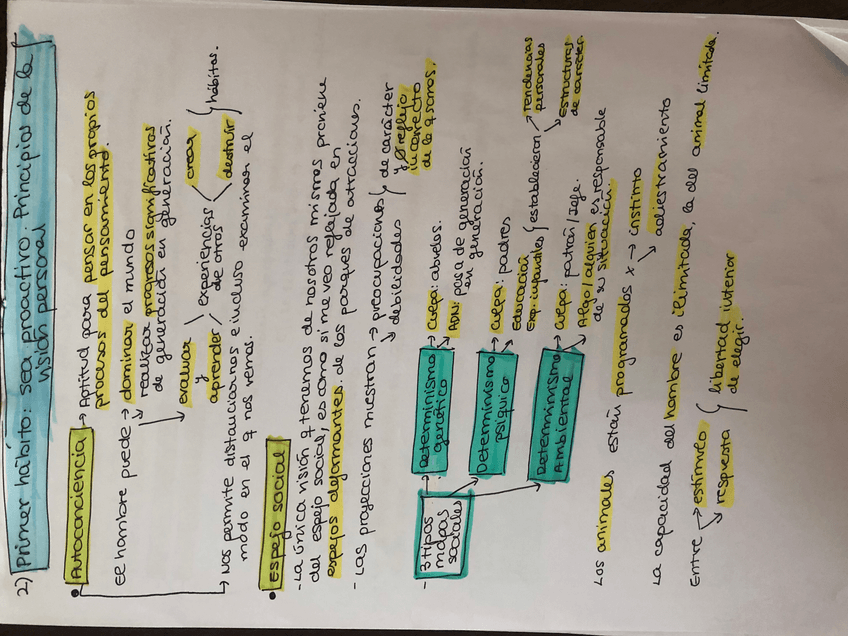 2) Primer hábito: ser proactivo. Principios de la
visión personal
• Autoconciencia → Aptitud para pensar en los propios
procesos del pensamiento.
El hombre puede → dominar el mundo
realizar progresos significativos
de generación en generación.
evaluar y aprender / experiencias de otros < crear
destruir { hábitos.
→ Nos permite distanciarnos e incluso examinar el
modo en el q nos vemos.
• Espejo social
- La única visión q tenemos de nosotros mismos proviene
del espejo social, es como si me veo reflejada en
espejos deformantes de los parques de atracciones.
- Las proyecciones muestran → preocupaciones
debilidades { de carácter
y reflejo
incorrecto
de lo q somos.
- 3 tipos
mapas
sociales
→ Determinismo
genético → Culpa: abuelos.
ADN: pasa de generación
en generación.
Determinismo
psíquico → Culpa: padres
Educación
Exp. infantiles { establecieron → tendencias
personales
estructuras
de carácter.
Determinismo
Ambiental → Culpa: patrón/Jefe.
Algo/alguien es responsable
de su situación.
Los animales están programados x → instinto
adiestramiento
La capacidad del hombre es ilimitada, la del animal limitada.
Entre → estímulo
respuesta { libertad interior
de elegir.